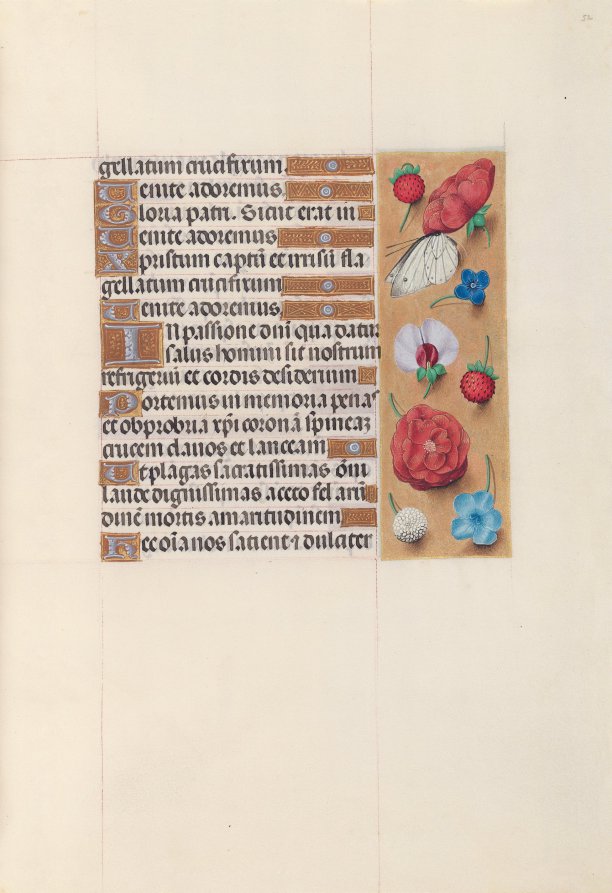 52
gellatum crucifixum
Uenite adoremus
Gloria patri. Sicut erat in
Uenite adoremus
Xpristum captū et irrisū fla
gellatum crucifixum
Uenite adoremus
In passione dñi qua datur
salus homini sit nostrum
refrigeriū et cordis desiderium
Portemus in memoria penas
et obprobria xpi coronā spineaꝫ
crucem clauos et lanceam
Ut plagas sacratissimas om̄i
laude dignissimas aceto fel arū
dinē mortis amaritudinem
Hec oīa nos satient ⁊ dulciter